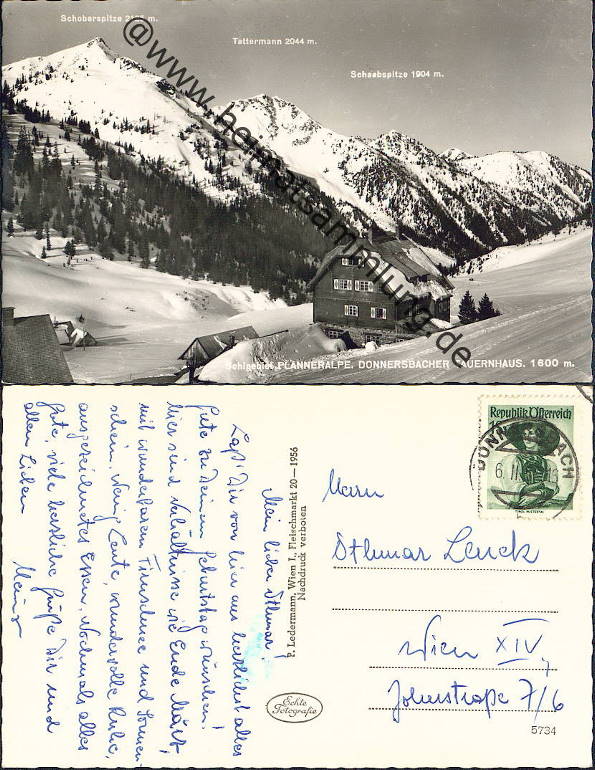 Schoberspitze 2126 m.
Tattermann 2044 m.
Schaabspitze 1904 m.
@www.heimatsammlung.de
Schigebiet PLANNERALPE, DONNERSBACHER TAUERNHAUS. 1600 m.
Mein lieber Othmar!
Laß' Dir von hier aus herzlichst alles
Gute zu Deinem Geburtstag wünschen!
Hier sind Verhältnisse wie Ende März,
mit wunderbarem Firnschnee und Sonnen-
schein. Wenig Leute, wundervolle Ruhe,
ausgezeichnetes Essen. Nochmals alles
Gute, viele herzliche Grüße Dir und
allen Lieben
Heinz
P. Ledermann, Wien I., Fleischmarkt 20 — 1956
Nachdruck verboten
Echte
Fotografie
Republik Österreich
DONNERSBACH
Herrn
Othmar Lenck
Wien XIV,
Johnstraße 7/6
5734